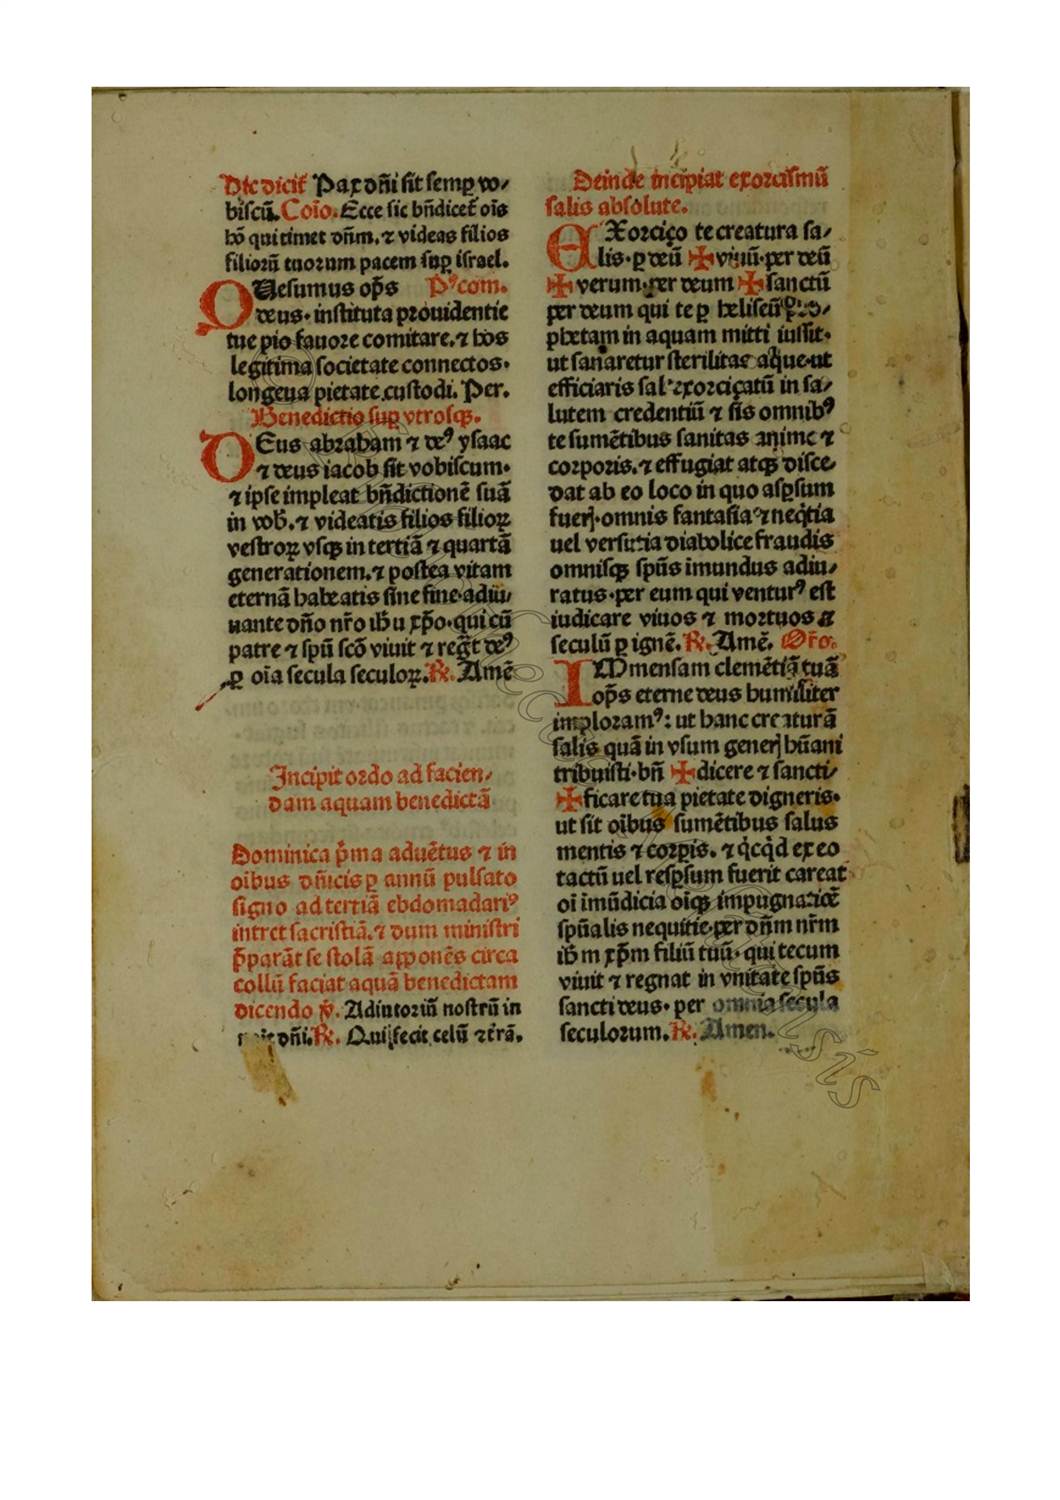 Hic dicit᷑ Pax dñi sit semꝑ vo⸗
biscū. Coīo. Ecce sic bñdicet᷑ oīs
hō qui timet dñm. ⁊ videas filios
filioꝛū tuoꝛum pacem suꝑ israel.
QUesumus op̄s Pꝰcom.
deus· instituta pꝛouidentie
tue pio fauoꝛe comitare. ⁊ hos
legitima societate connectos·
longeua pietate custodi. Per.
Benedictio suꝑ vtrosqꝫ.
DEus abꝛaham ⁊ deꝰ ysaac
⁊ deus iacob sit vobiscum·
⁊ ipse impleat bñdictionē suā
in vob̄. ⁊ videatis filios filioꝝ
vestroꝝ vsqꝫ in tertiā ⁊ quartā
generationem. ⁊ postea vitam
eternā habeatis sine fine· adiu⸗
uante dño nr̄o ih̄u xp̄o· qui cū
patre ⁊ spū scō viuit ⁊ regt̄ deꝰ
ꝑ oīa secula seculoꝝ. ℞. Amē
Incipit oꝛdo ad facien⸗
dam aquam benedictā
Dominica p̄ma aduētus ⁊ in
oībus dn̄icis ꝑ annū pulsato
signo ad tertiā ebdomadariꝰ
intret sacristiā. ⁊ dum ministri
p̄parāt se stolā apponēs circa
collū faciat aquā benedictam
dicendo ℣. Adiutoꝛiū nostrū in
dñi. ℞. Qui fecit celū ⁊ tr̄ā.
Deinde incipiat exoꝛcismū
salis absolute.
EXoꝛciço te creatura sa⸗
lis· ꝑ deū ✠ viuū· per deū
✠ verum· per deum ✠ sanctū
per deum qui te ꝑ heliseū ꝓ⸗
phetam in aquam mitti iussit·
ut sanaretur sterilitas aque· ut
efficiaris sal exoꝛciçatū in sa⸗
lutem credentiū ⁊ sis omnibꝰ
te sumētibus sanitas anime ⁊
coꝛpoꝛis. ⁊ effugiat atqꝫ disce⸗
dat ab eo loco in quo aspsum
fuerj· omnis fantasia ⁊ neq̇tia
uel versutia diabolice fraudis
omnisqꝫ spūs īmundus adiu⸗
ratus· per eum qui venturꝰ est
iudicare viuos ⁊ moꝛtuos ⁊
seculū ꝑ ignē. ℞. Amē. Oꝛ̄o.
IMmensam clemētiā tuā
op̄s eterne deus humiliter
imploꝛamꝰ: ut hanc creaturā
salis quā in vsum generj hūani
tribuisti· bn̄ ✠ dicere ⁊ sancti⸗
✠ ficare tua pietate digneris·
ut sit oībus sumētibus salus
mentis ⁊ coꝛꝑis. ⁊ q̇cq̇d ex eo
tactū uel resꝑsum fuerit careat
oī īmūdicia oīqꝫ impugnatiōe
spūalis nequitie· per dn̄m nr̄m
ih̄m xp̄m filiū tuū· qui tecum
viuit ⁊ regnat in vnitate spūs
sancti deus· per omnia secula
seculoꝛum. ℞. Amen.